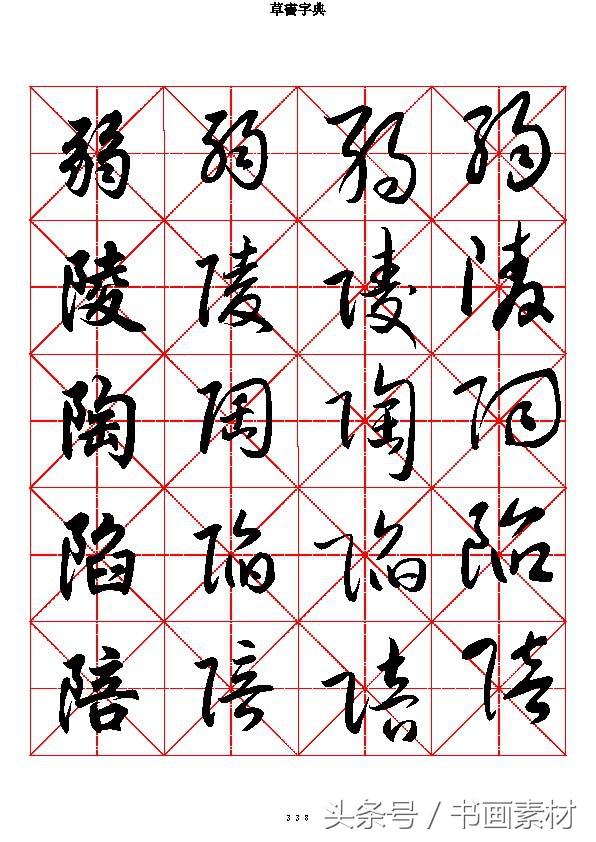 草書字典
弱弱弱弱
陵陵陵陵
陶陶陶陶
陷陷陷陷
陪陪陪陪
338
头条号 / 书画素材